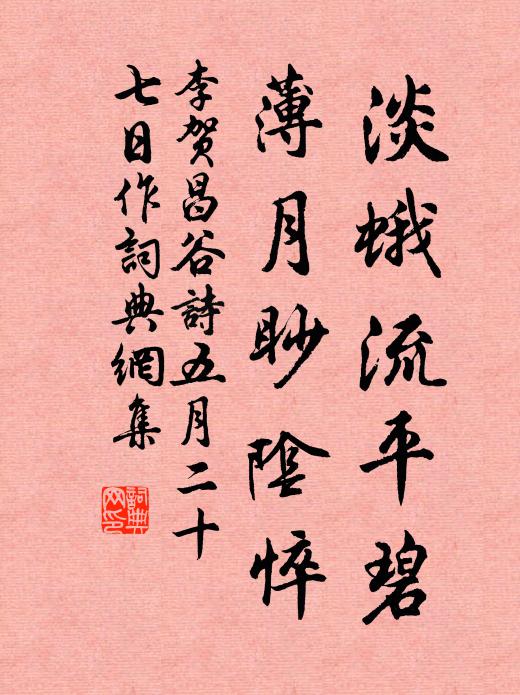 淡蛾流平碧
薄月眇陰悴
李贺昌谷詩五月二十
七日作詞典網集
詞典
网印